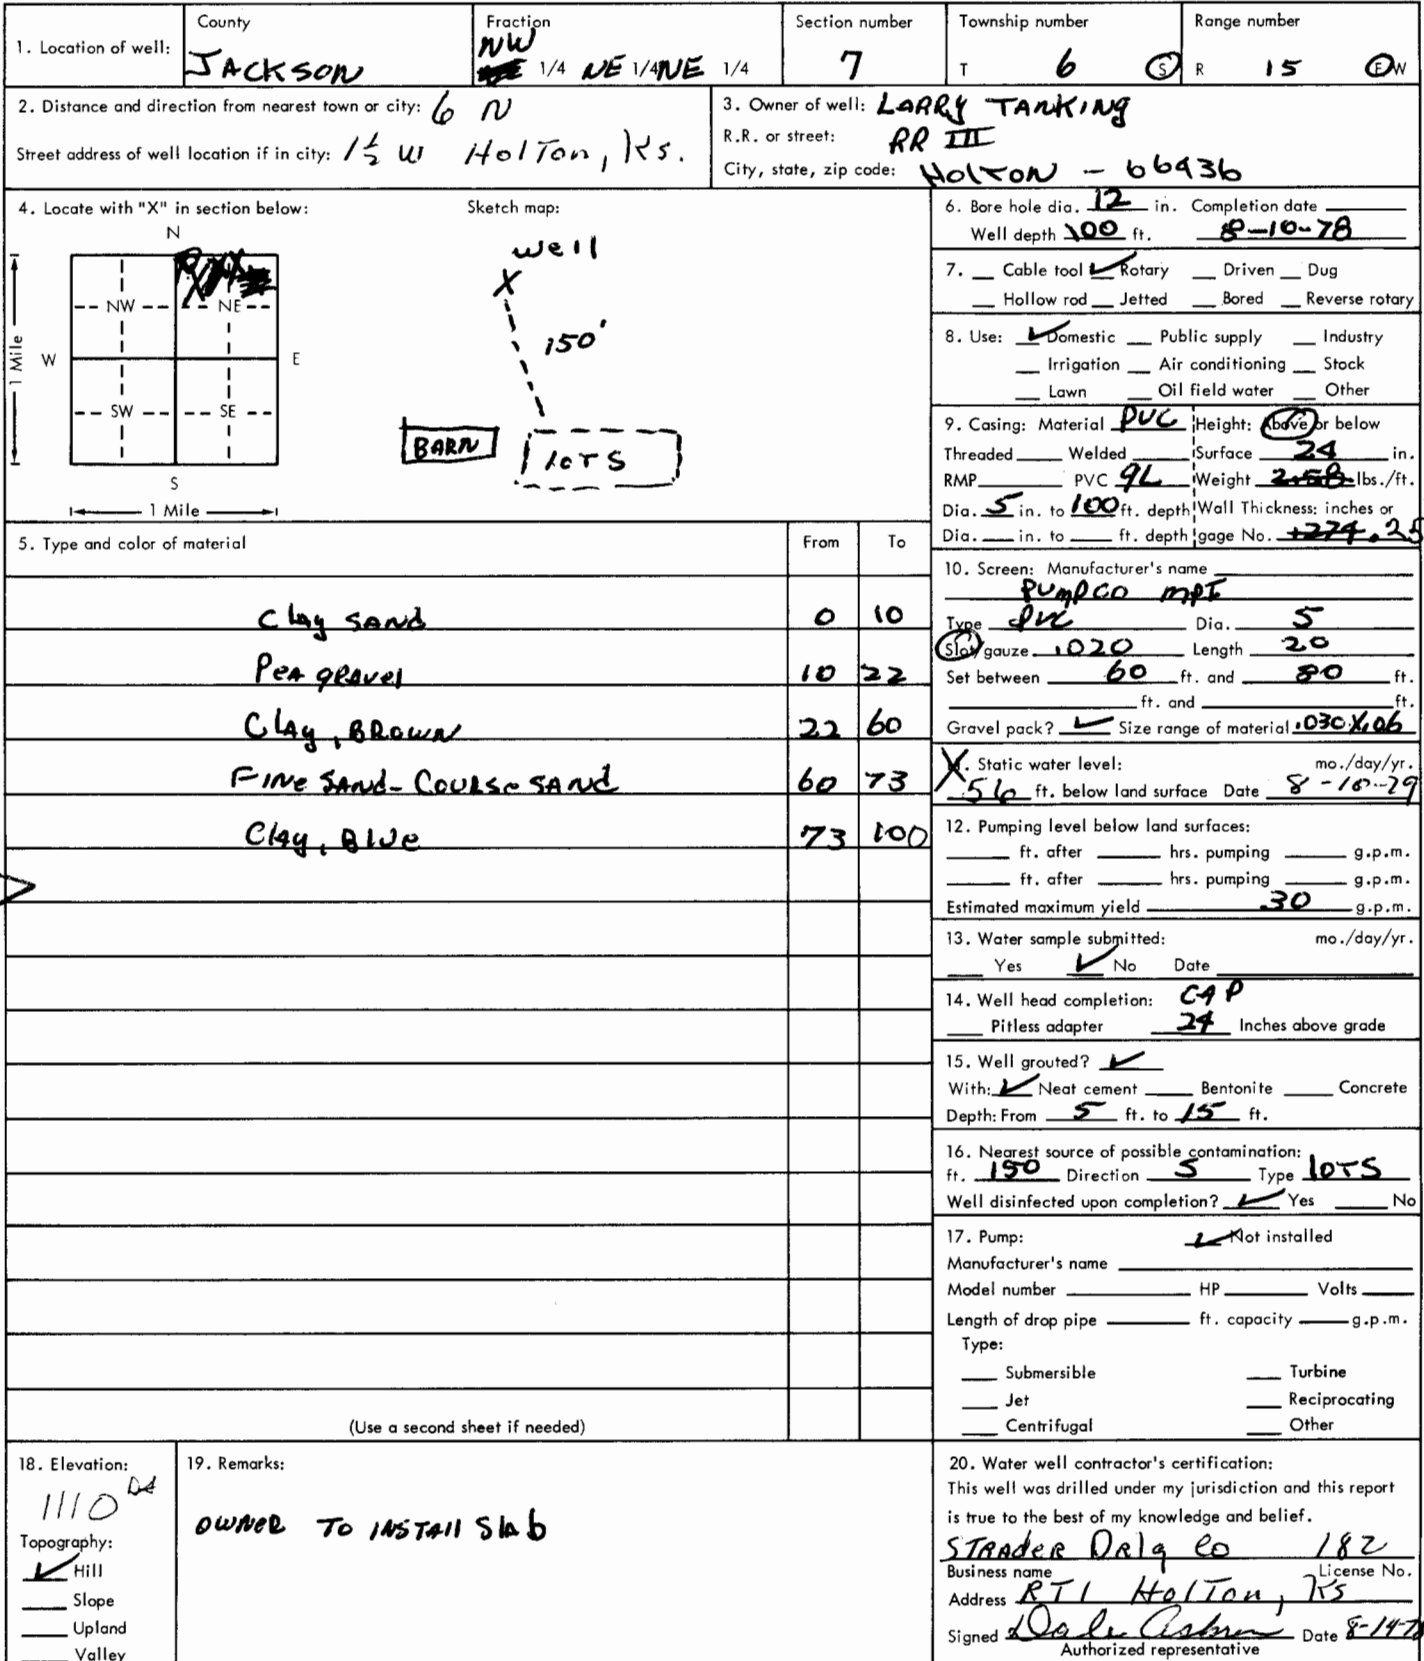 1. Location of well: County JACKSON Fraction NW 1/4 NE 1/4 NE 1/4 Section number 7 Township number T 6 S Range number R 15 E W
2. Distance and direction from nearest town or city: 6 N
Street address of well location if in city: 1 1/2 W Holton, Ks.
3. Owner of well: LARRY TANKING
R.R. or street: RR III
City, state, zip code: HOLTON - 66436
4. Locate with "X" in section below:
N
NW NE
W E
SW SE
S
1 Mile
1 Mile
Sketch map:
well
X
150'
BARN
LOTS
5. Type and color of material From To
Clay SAND 0 10
Pea gravel 10 22
Clay, BROWN 22 60
FINE SAND - COURSE SAND 60 73
Clay, Blue 73 100
(Use a second sheet if needed)
6. Bore hole dia. 12 in. Completion date
Well depth 100 ft. 8-10-78
7. Cable tool ✓ Rotary Driven Dug
Hollow rod Jetted Bored Reverse rotary
8. Use: ✓ Domestic Public supply Industry
Irrigation Air conditioning Stock
Lawn Oil field water Other
9. Casing: Material PVC Height: Above or below
Threaded Welded Surface 24 in.
RMP PVC GL Weight 2.58 lbs./ft.
Dia. 5 in. to 100 ft. depth Wall Thickness: inches or
Dia. in. to ft. depth gage No. .25
10. Screen: Manufacturer's name
PUMPCO MPI
Type PVC Dia. 5
Slot/gauze .020 Length 20
Set between 60 ft. and 80 ft.
ft. and ft.
Gravel pack? ✓ Size range of material .030 X .06
X. Static water level: mo./day/yr.
56 ft. below land surface Date 8-10-79
12. Pumping level below land surfaces:
ft. after hrs. pumping g.p.m.
ft. after hrs. pumping g.p.m.
Estimated maximum yield 30 g.p.m.
13. Water sample submitted: mo./day/yr.
Yes ✓ No Date
14. Well head completion: CAP
Pitless adapter 24 Inches above grade
15. Well grouted? ✓
With: ✓ Neat cement Bentonite Concrete
Depth: From 5 ft. to 15 ft.
16. Nearest source of possible contamination:
ft. 150 Direction S Type LOTS
Well disinfected upon completion? ✓ Yes No
17. Pump: ✓ Not installed
Manufacturer's name
Model number HP Volts
Length of drop pipe ft. capacity g.p.m.
Type:
Submersible Turbine
Jet Reciprocating
Centrifugal Other
18. Elevation:
1110
Topography:
✓ Hill
Slope
Upland
Valley
19. Remarks:
OWNER TO INSTALL Slab
20. Water well contractor's certification:
This well was drilled under my jurisdiction and this report
is true to the best of my knowledge and belief.
STRADER Drlg Co 182
Business name License No.
Address RT1 Holton, Ks
Signed Dale Date 8-14-7
Authorized representative